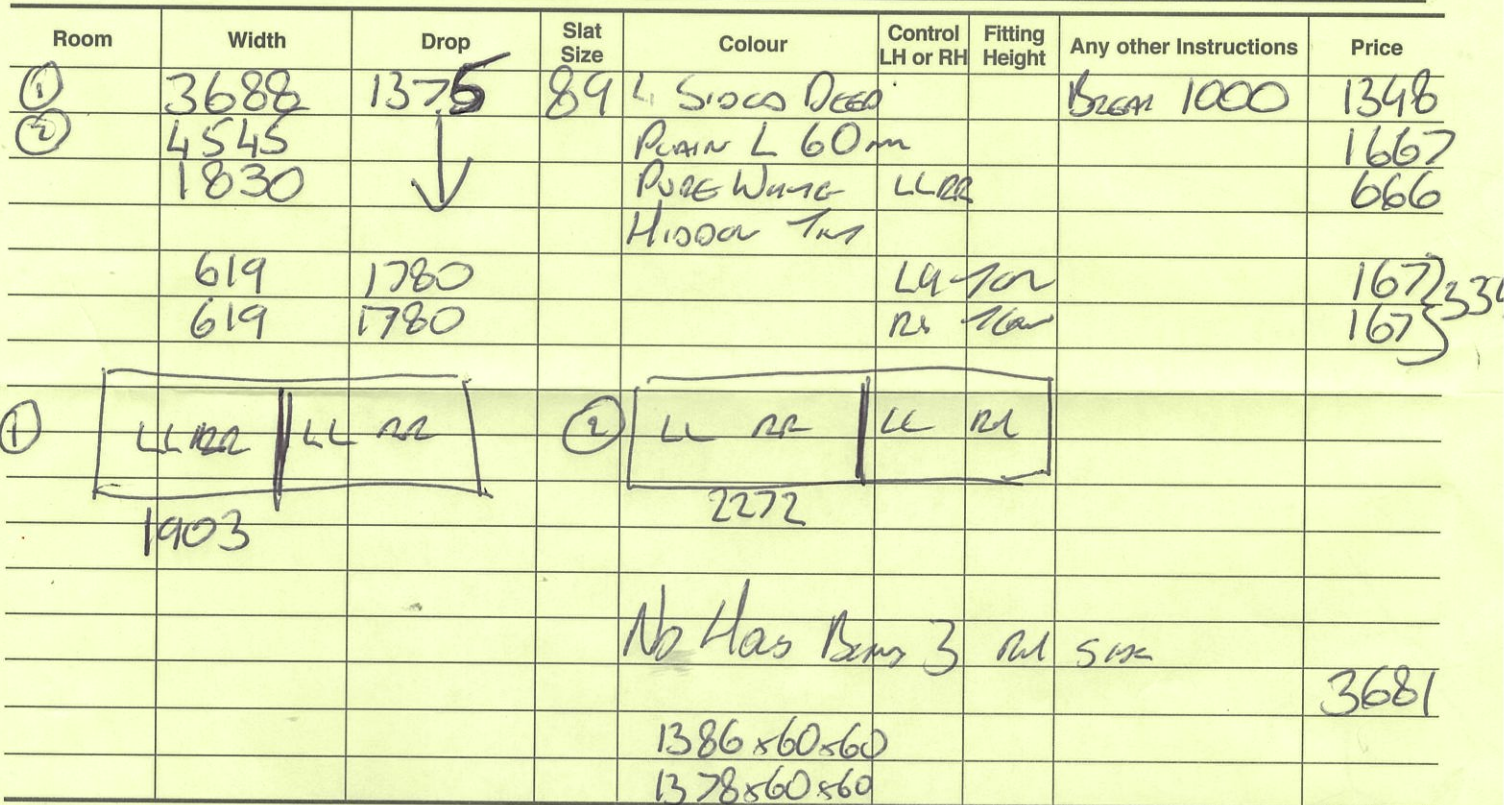 Room Width Drop Slat Size Colour Control LH or RH Fitting Height Any other Instructions Price
① 3688 1375 89 L Sides Deep Break 1000 1348
② 4545 Plain L 60mm 1667
1830 Pure White LLRR 666
Hidden
619 1780 LH 167 } 334
619 1780 RH 167
① LLRR LL RR ② LL RR LL RR
1903 2272
No 3 RH Side
3681
1386x60x60
1378x60x60